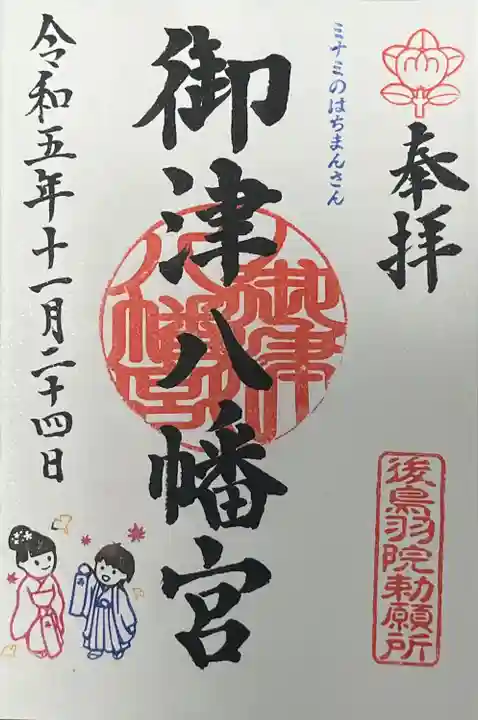 奉拝
後鳥羽院勅願所
ミナミのはちまんさん
御津八幡宮
御津八幡宮
令和五年十一月二十四日